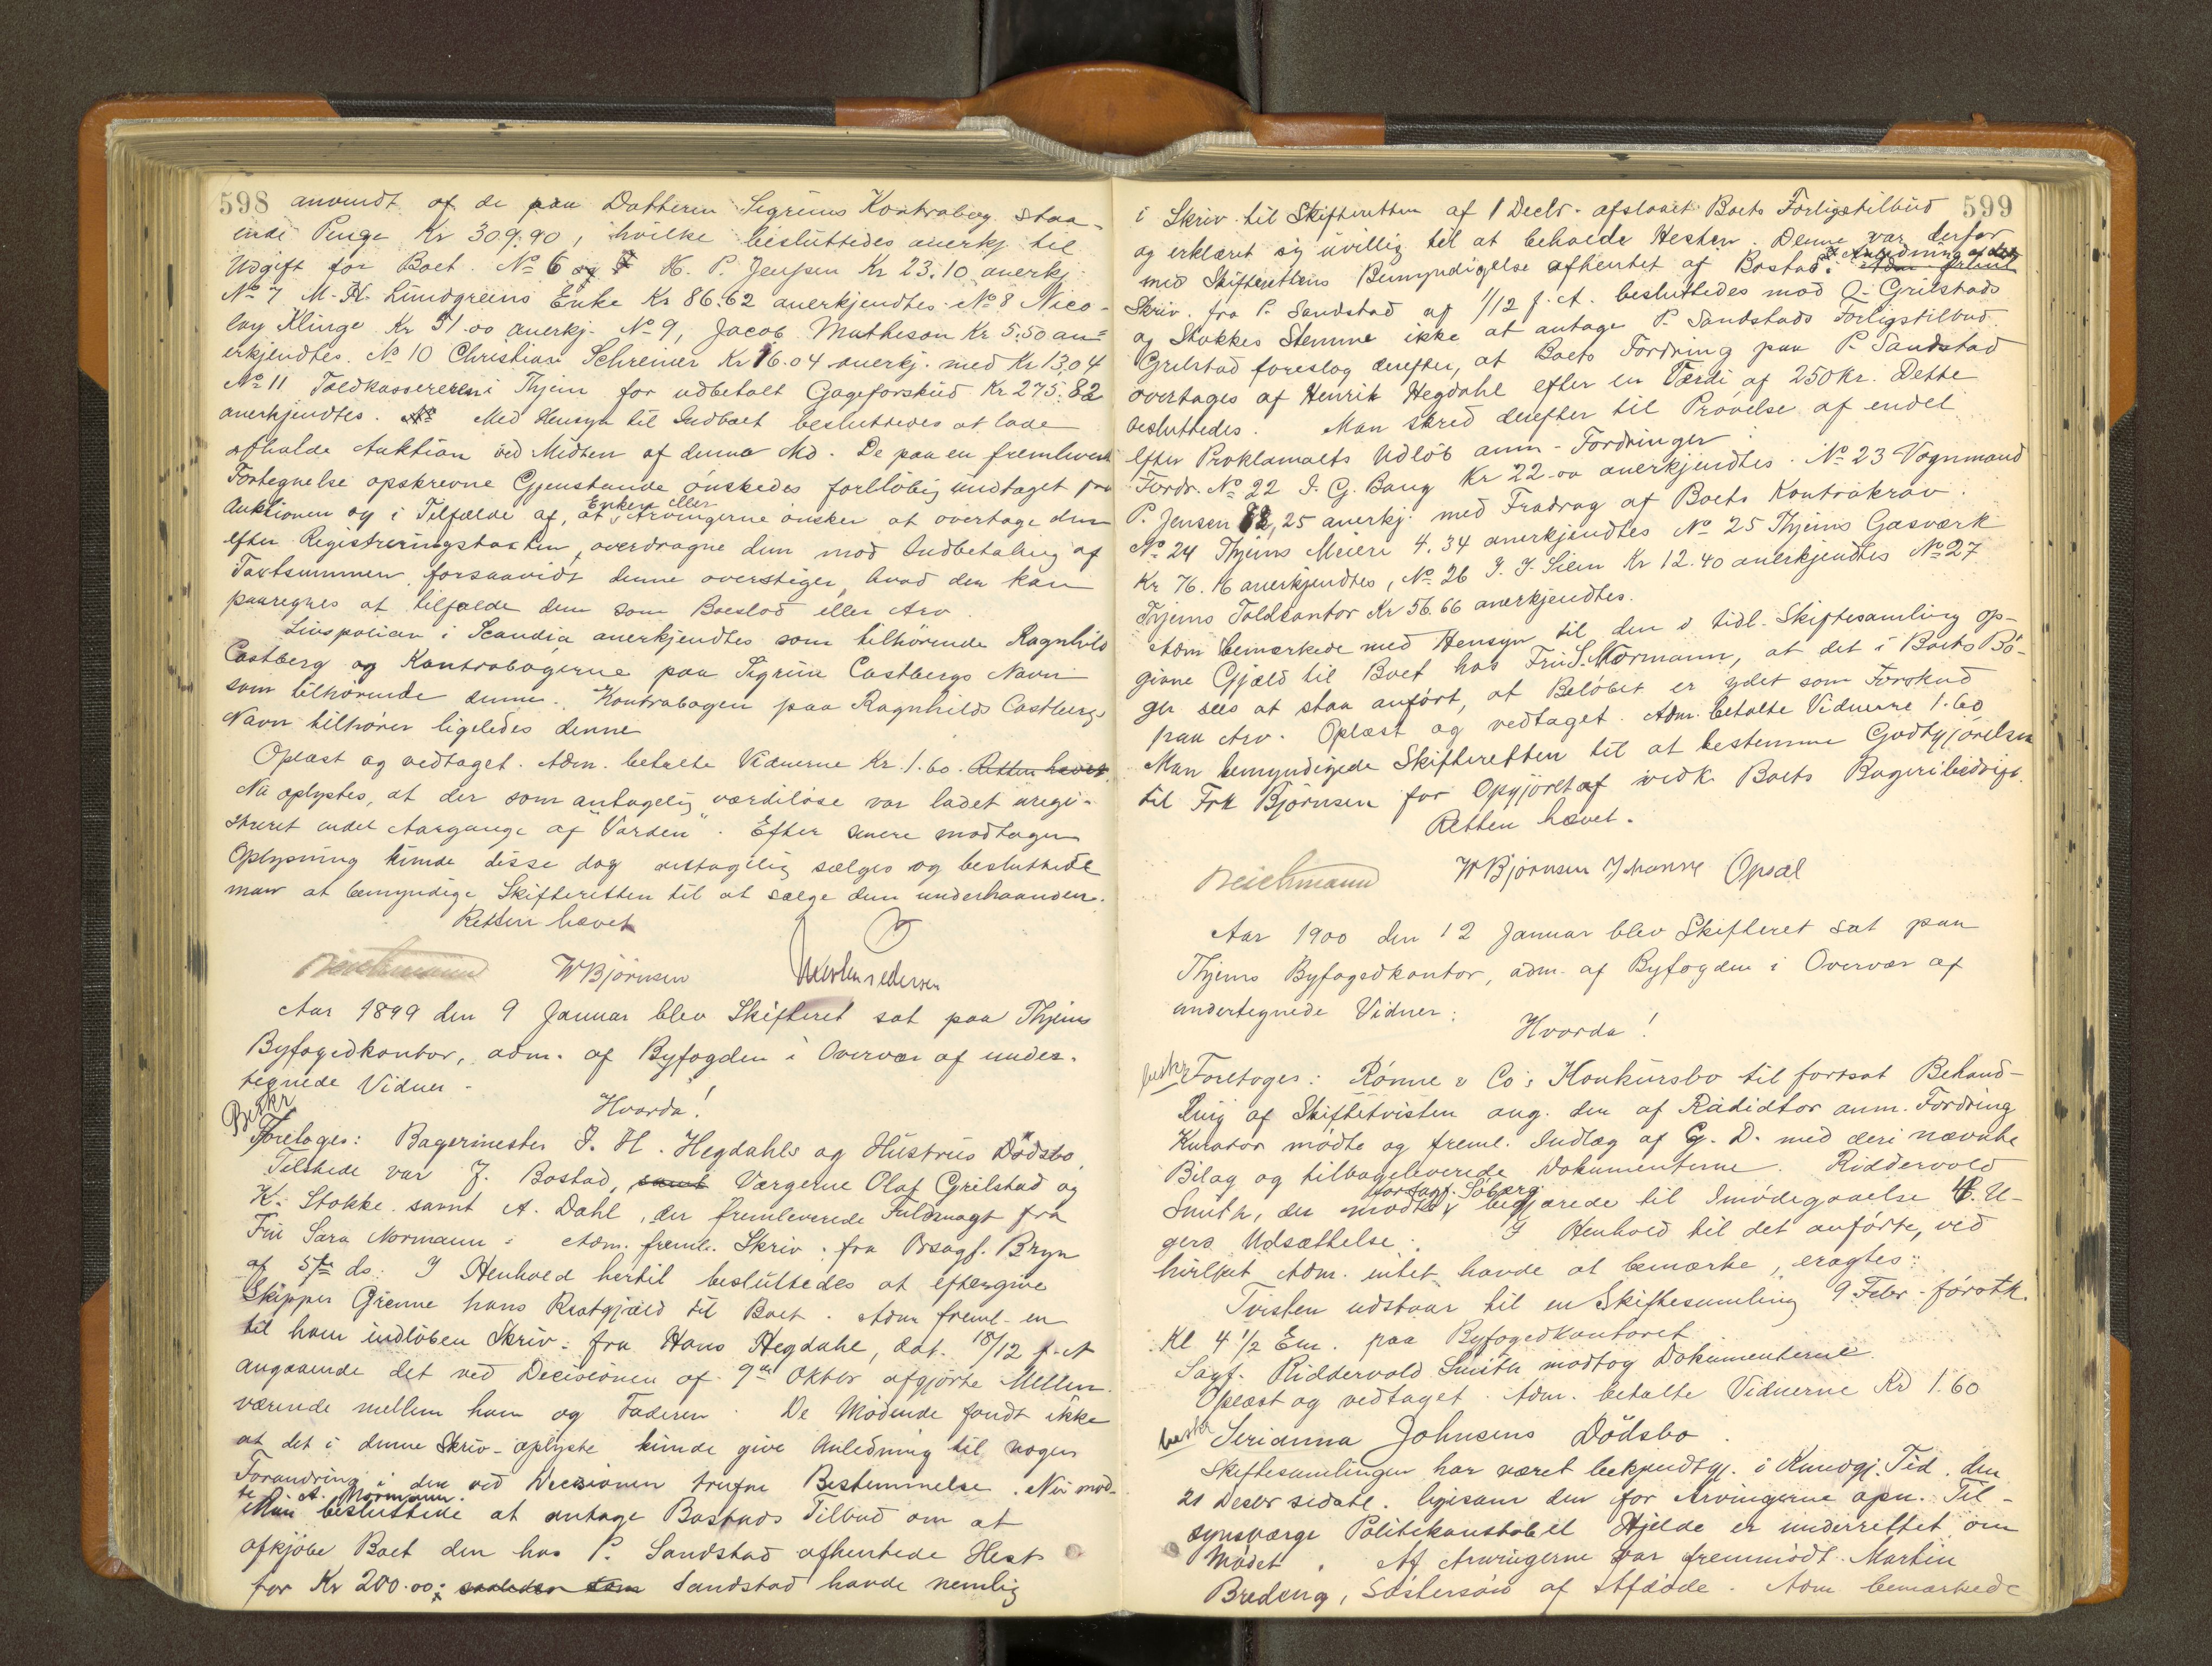 598
anvendt af de paa Datteren Sigruns Kontrabog staa-
ende Penge Kr 309.90, hvilke besluttedes anerkj til
Udgift for Boet. No 6 og H. P. Jenssen Kr 23.10 anerkj.
No 7 M. H. Lundgreens Enke Kr 86.62 anerkjendtes. No 8 Nico-
lay Klinge Kr 51.00 anerkj. No 9, Jacob Matheson Kr 5.50 an=
erkjendtes. No 10 Christian Schreiner Kr 16.04 anerkj. med Kr 13,04
No 11 Toldkassereren i Thjem for udbetalt Gageforskud Kr 275.82
anerkjendtes. No Med Hensyn til Indboet besluttedes at lade
afholde Auktion ved Midten af denne Md. De paa en fremlevert
Fortegnelse opskrevne Gjenstande ønskedes forløbig undtaget fra
Auktionen og i Tilfælde af, at Enken eller Arvingerne ønsker at overtage dem
efter Registreringstaxten, overdragne dem mod Indbetaling af
Taxtsummen, forsaavidt denne overstiger, hvad der kan
paaregnes at tilfalde dem som Boeslod eller Arv.
Livspolicen i Scandia anerkjendtes som tilhørende Ragnhild
Castberg og Kontrabøgerne paa Sigrun Castbergs Navn
som tilhørende denne. Kontrabogen paa Ragnhilds Castbergs
Navn tilhører ligeledes denne
Oplæst og vedtaget. Adm. betalte Vidnerne Kr. 1.60. Retten hævet.
Nu oplystes, at der som antagelig værdiløse var ladet uregi-
streret endel Aargange af "Varden". Efter senere modtagen
Oplysning kunde disse dog antagelig sælges og besluttede
man at bemyndige Skifteretten til at sælge dem underhaanden.
Retten hævet
Deichmann W Bjørnsen
Aar 1899 den 9 Januar blev Skifteret sat paa Thjems
Byfogedkontor, adm. af Byfogden i Overvær af under-
tegnede Vidner -
Hvorda!
Beskr
Foretoges: Bagermester J. H. Hegdahls og Hustrus Dødsbo.
Tilstede var J. Bostad, samt Værgerne Olaf Grilstad og
K. Stokke samt A. Dahl, der fremleverede Fuldmagt fra
Fru Sara Normann: Adm. freml. Skriv. fra Orsagf. Bryn
af 5te ds. I Henhold hertil besluttedes at eftergive
Skipper Grenne hans Restgjæld til Boet. Adm freml- en
til ham indløben Skriv. fra Hans Hegdahl, dat. 18/12 f. A
angaaende det ved Decisionen af 9de Oktbr afgjorte Mellem-
værende mellem ham og Faderen. De Mødende fandt ikke
at det i denne Skriv- oplyste kunde give Anledning til nogen
Forandring i den ved Decisionen trufne Bestemmelse. Nu mød-
te A. Normann.
Man besluttede at antage Bostads Tilbud om at
afkjøbe Boet den hos P. Sandstad afhentede Hest
for Kr 200.00; saaledes som Sandstad havde nemlig
599
i Skriv til Skifteretten af 1 Decbr. afslaaet Boets Forligstilbud
og erklæret sig uvillig til at beholde Hesten. Denne var derfor
med Skifterettens Bemyndigelse afhentet af Bostad. I Anledning af det
Skriv. fra P. Sandstad af 1/12 f. A. besluttedes mod O. Grilstads
og Stokkes Stemme ikke at antage P. Sandstads Forligstilbud.
Grilstad foreslog derefter, at Boets Fordring paa P. Sandstad
overtages af Henrik Hegdahl efter en Værdi af 250 Kr. Dette
besluttedes. Man skred derefter til Prøvelse af endel
efter Proklamaets Udløb anm- Fordringer:
Fordr. No 22 I. G. Bang Kr 22.00 anerkjendtes. No 23 Vognmand
P. Jensen 82,25 anerkj. med Fradrag af Boets Kontrakrav.
No 24 Thjems Meieri 4.34 anerkjendtes No 25 Thjems Gasværk
Kr 76.16 anerkjendtes, No 26 J. J. Siem Kr 12.40 anerkjendtes No 27
Thjems Toldkontor Kr 56.66 anerkjendtes.
Adm bemærkede med Hensyn til den i tidl. Skiftesamling op-
givne Gjæld til Boet hos Fru S. Normann, at det i Boets Bø-
ger sees at staa anført, at Beløbet er ydet som Forskud
paa Arv. Oplæst og vedtaget. Adm. betalte Vidnerne 1.60
Man bemyndigede Skifteretten til at bestemme Godtgjørelsen
til Frk Bjørnsen for Opgjøret af vedk. Boets Bageribedrift.
Retten hævet.
Deichmann W Bjørnsen Johanne Opsal
Aar 1900 den 12 Januar blev Skifteret sat paa
Thjems Byfogedkontor, adm. af Byfogden i Overvær af
undertegnede Vidner:
Hvorda!
beskr
Foretoges: Rønne & Co's Konkursbo til fortsat Behand-
ling af Skiftetvisten ang. den af Rådidtor anm. Fordring
Kurator mødte og freml. Indlæg af G. D. med deri nævnte
Bilag og tilbageleverede Dokumenterne. Riddervold
Smith, der mødte for Sagf. Søberg begjærede til Imødegaaelse 4 U-
gers Udsættelse. I Henhold til det anførte, ved
hvilket Adm. intet havde at bemærke, eragtes:
Tvisten udstaar til en Skiftesamling 9 Febr. førstk.
Kl 4 1/2 Em. paa Byfogedkontoret.
Sagf. Riddervold Smith modtog Dokumenterne.
Oplæst og vedtaget. Adm. betalte Vidnerne Kr 1.60
beskr
Serianna Johnsens Dødsbo.
Skiftesamlingen har været bekjendtgj. i Kundgj. Tid. den
21 Decbr sidstl. ligesom den for Arvingerne opn. Til-
synsværge Politikonstabel Hjelde er underrettet om
Mødet. Af Arvingerne var fremmødt Martin
Bredeng, Søstersøn af Afdøde. Adm bemærkede